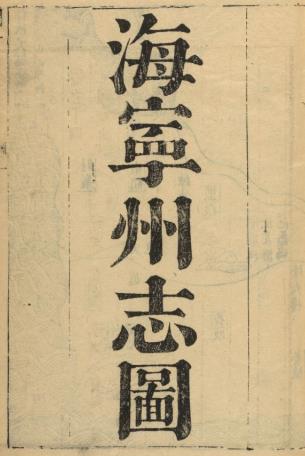 海寧州志圖